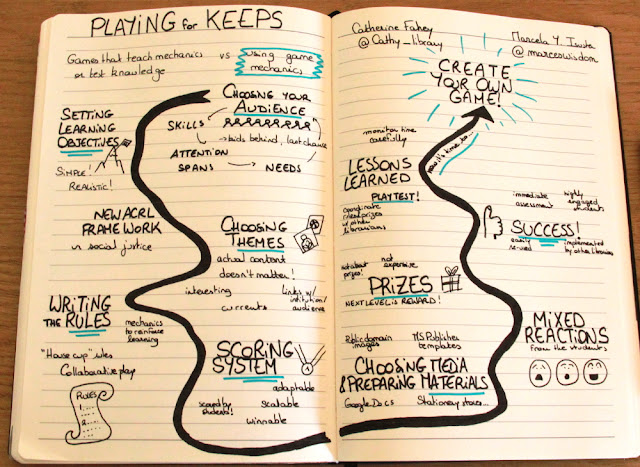 PLAYING for KEEPS
Games that teach mechanics
or test knowledge
vs
using game
mechanics
SETTING
LEARNING
OBJECTIVES
SIMPLE!
REALISTIC!
CHOOSING YOUR
AUDIENCE
SKILLS
behind, last chance
ATTENTION
SPANS
NEEDS
NEW ACRL
FRAMEWORK
social justice
CHOOSING
THEMES
actual content
doesn't matter!
interesting
currents
Links w/
institution/
audience
WRITING
THE RULES
mechanics
to reinforce
learning
"House cup" rules
Collaborative play
RULES
1....
2....
SCORING
SYSTEM
adaptable
scored by
students!
scalable
winnable
Catherine Fahey
@Cathy_library
Marcela Y. Isuster
@marcelawisdom
CREATE
YOUR OWN
GAME!
now it's time to...
monitor time
carefully
LESSONS
LEARNED
PLAYTEST!
coordinate
prizes
w/ other
librarians
immediate
assessment
highly
engaged
students
SUCCESS!
easily
re-used
implemented
by other libraries
not about
prizes!
not expensive
PRIZES
NEXT LEVEL IS REWARD!
MIXED
REACTIONS
from the students
Public domain
images
MS Publisher
templates
CHOOSING MEDIA
& PREPARING MATERIALS
Google Docs
Stationery stores...